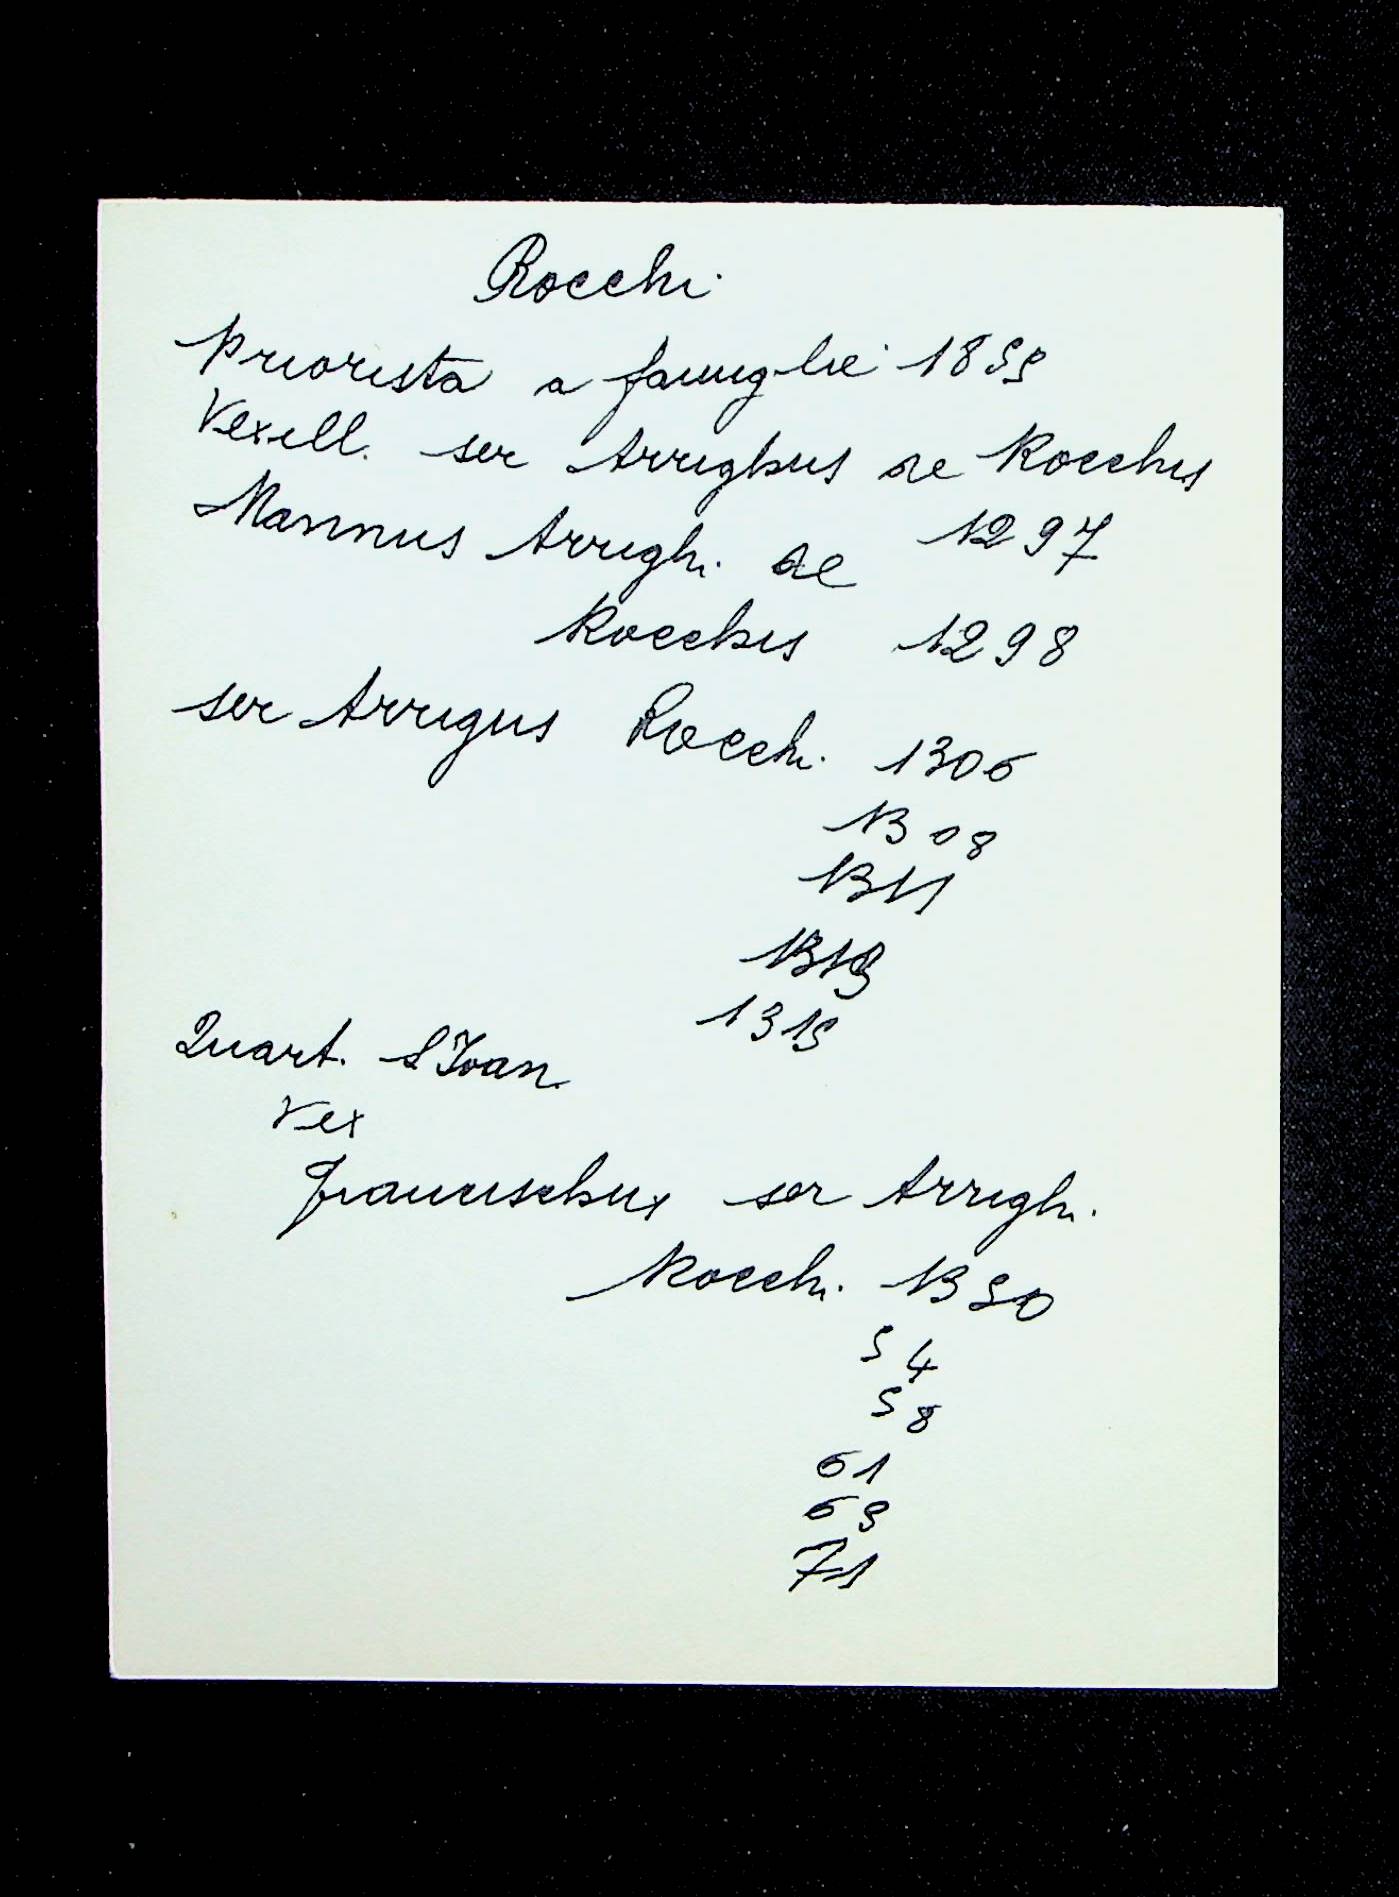 Rocchi
Priorista a famiglie 1855
Vexill. ser Arrighus de Rocchis
1297
Mannus Arrighi de
Rocchis 1298
ser Arrigus Rocchi 1306
1308
1311
1313
1315
Quart. S Ioan.
Vex
Francischus ser Arrighi
Rocchi 1350
54
58
61
63
71